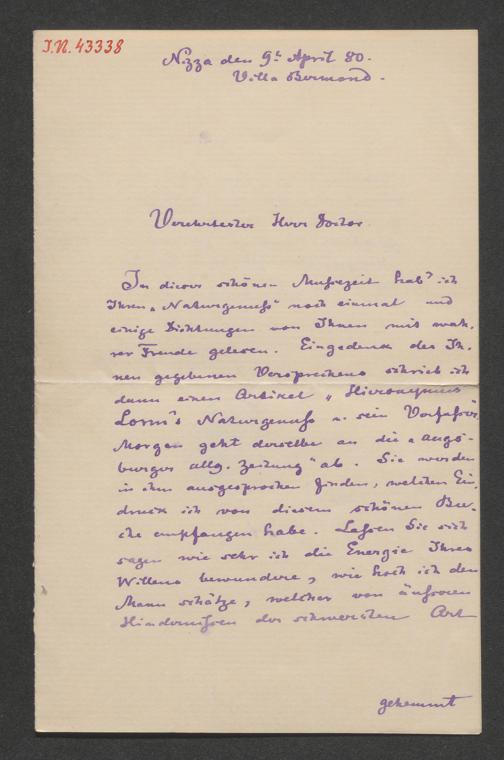 I.N. 43338
Nizza den 9t April 80.
Villa Bermond.
Verehrtester Herr Doctor
In dieser schönen Mußezeit hab' ich
Ihren „Naturgenuß" noch einmal und
einige Dichtungen von Ihnen mit wah-
rer Freude gelesen. Eingedenk des Ih-
nen gegebenen Versprechens schrieb ich
dann einen Artikel „Hieronymus
Lorm's Naturgenuß u. sein Verfasser"
Morgen geht derselbe an die „Augs-
burger allg. Zeitung" ab. Sie werden
in ihm ausgesprochen finden, welchen Ein-
druck ich von diesem schönen Bu-
che empfangen habe. Lassen Sie sich
sagen wie sehr ich die Energie Ihres
Willens bewundere, wie hoch ich den
Mann schätze, welcher von äußeren
Hindernißen der schwersten Art
gehemmt